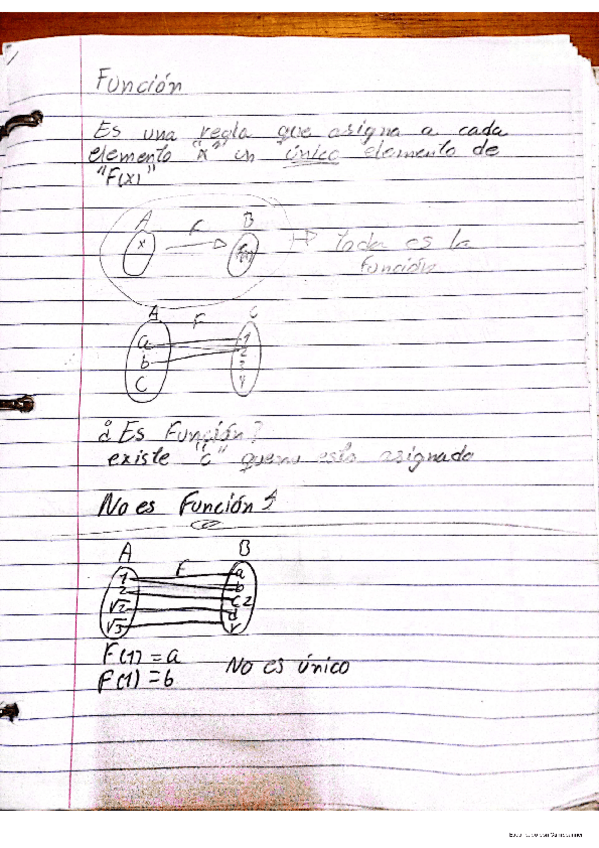 Función
Es una regla que asigna a cada
elemento "x" un único elemento de
"F(x)"
A F B
x F(x) Toda es la
función
A F C
a 1
b 2
c 3
¿Es Función?
existe "c" que no está asignado
No es Función
A F B
1 a
2 b
√2 c
√3 d
F(1) = a
F(1) = b No es único